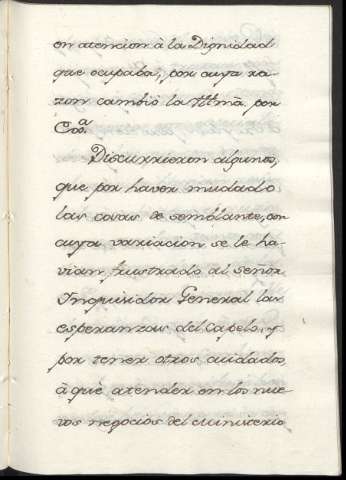 en atencion à la Dignidad
que ocupaba, por cuya ra
zon cambiò la Ittmâ. por
Exa.
Discurrieron algunos,
que por haver mudado
las cosas de semblante, con
cuya variacion se le ha-
vian frustrado al señor
Inquisidor General las
esperanzas del Capelo, y
por tener otros cuidados,
à que atender en los nue
vos negocios del ministerio